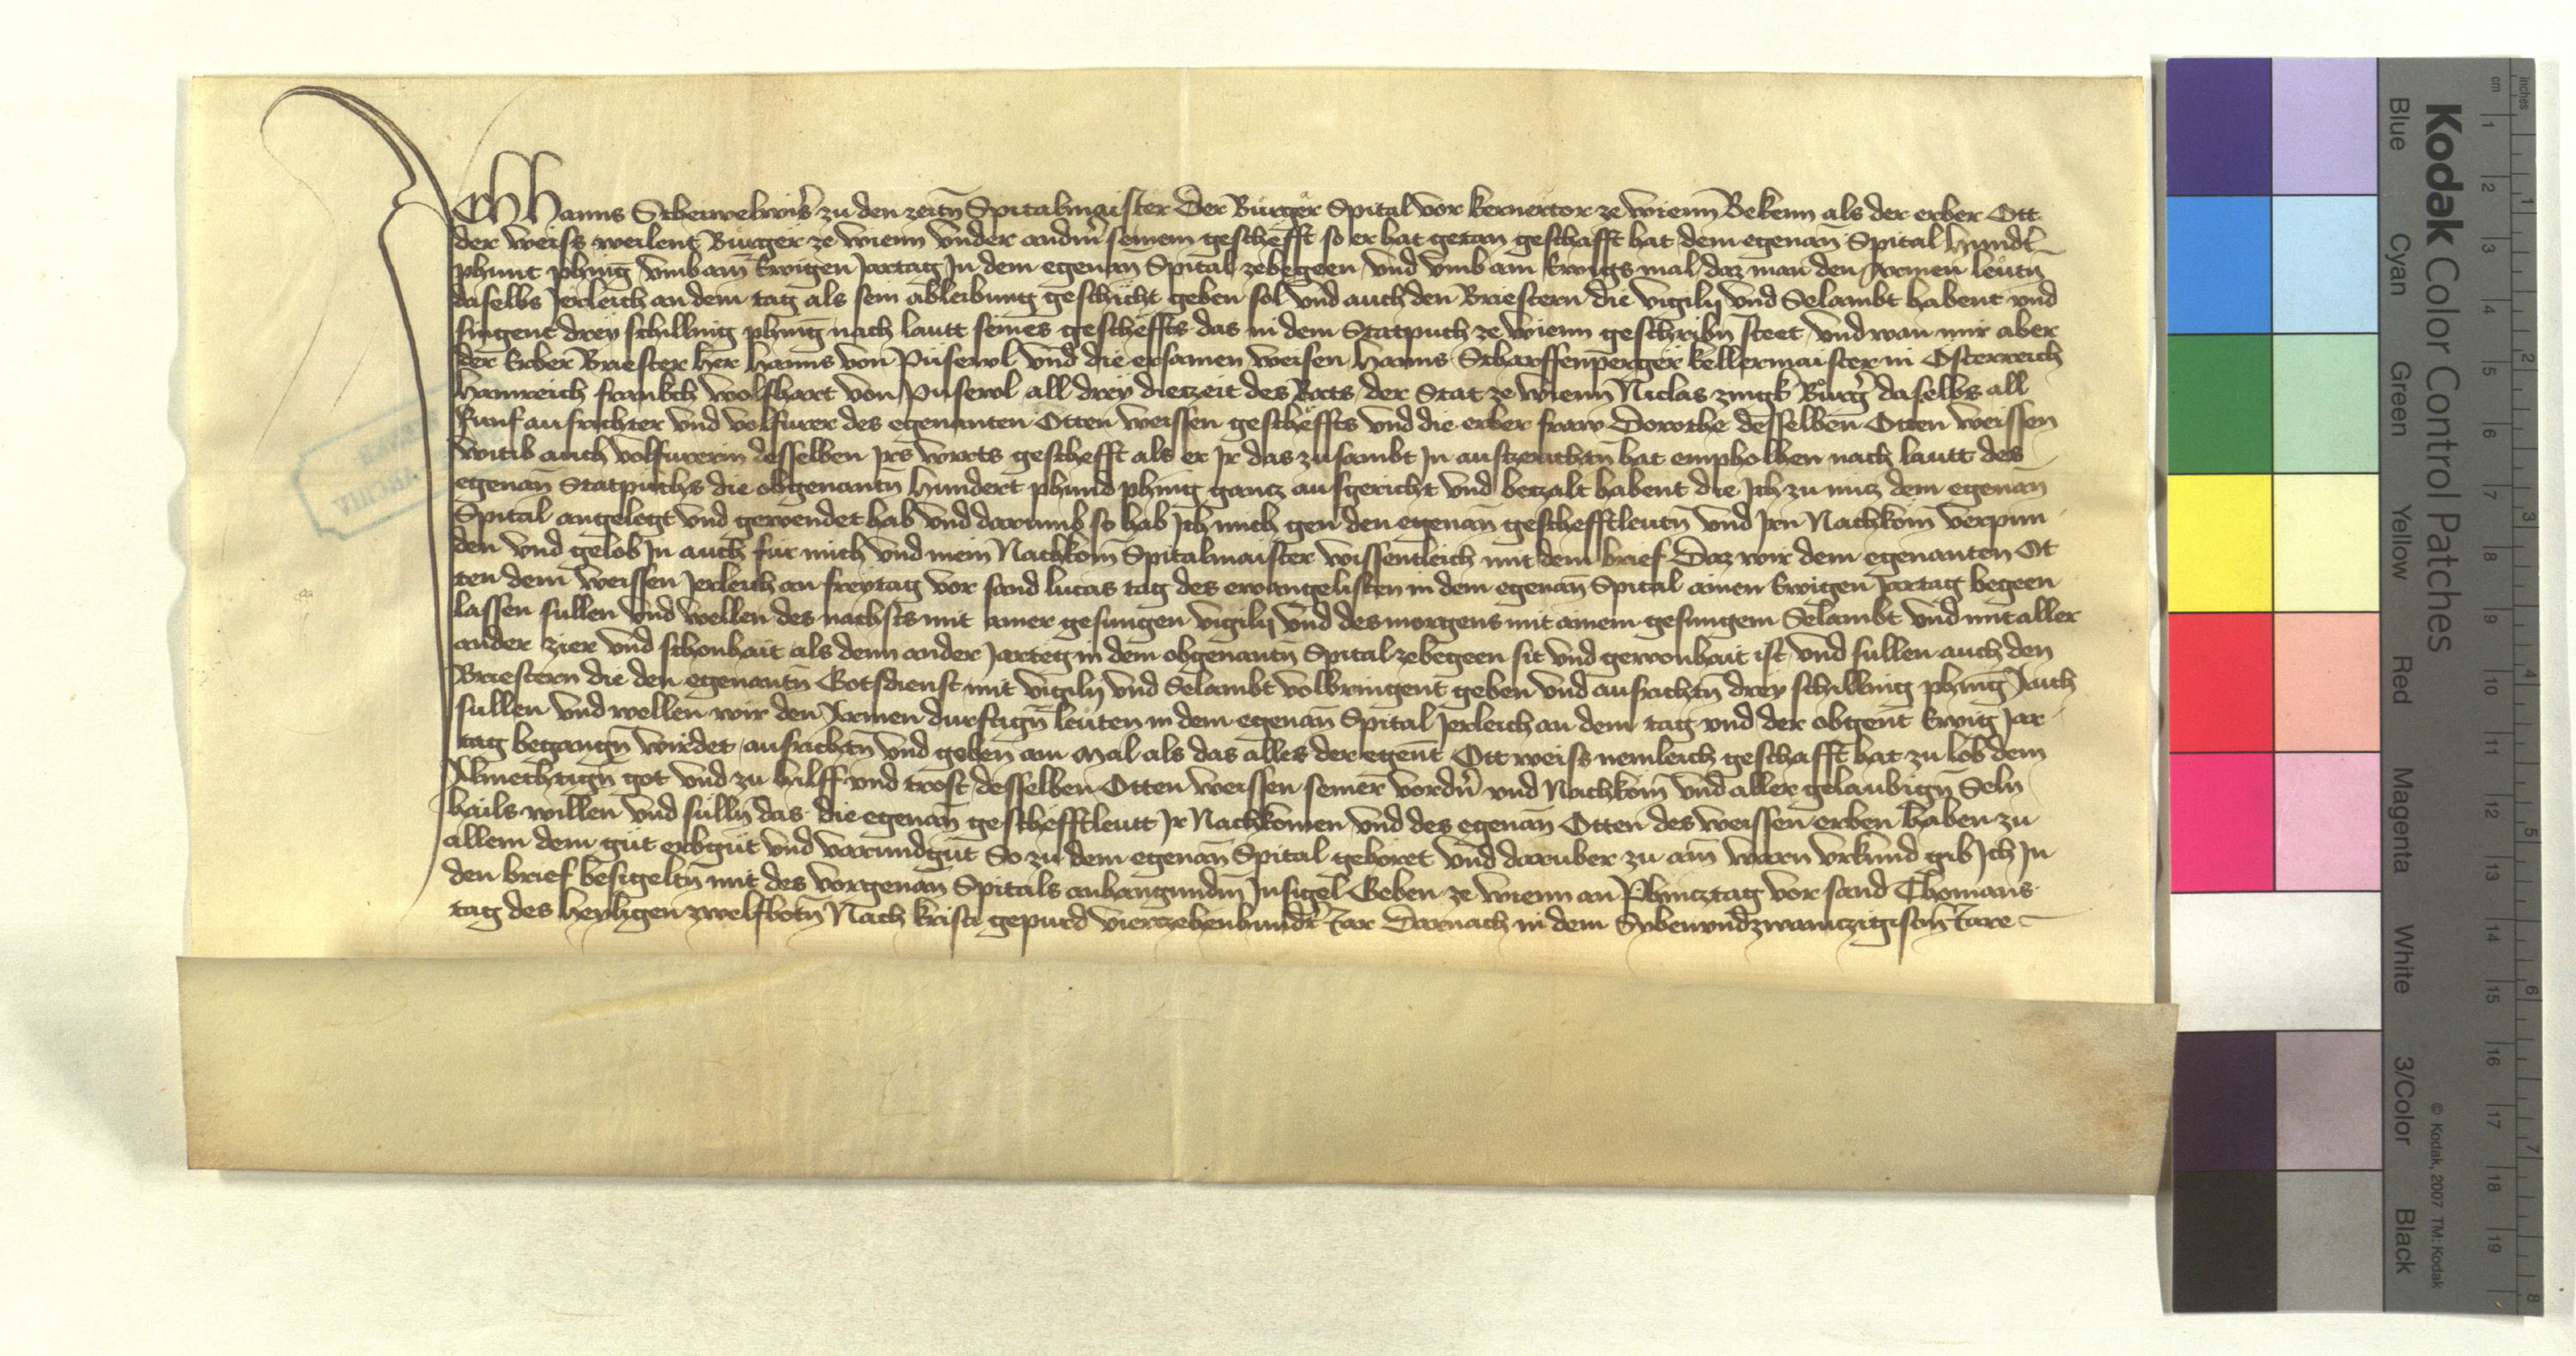 ICh Hanns Scherwelwis̄ zu den zeitn̄ Spitalmaister Der Burger Spital vor kernertor ze wienn Bekenn als der erber Ott
der weiss weilent Burger ze wienn vnder andm̄ seinem geschefft so er hat getan geschafft hat dem egenan̄ Spital hundt̄
phunt phīng vmb ain̄ Ewigen Jartag Jn dem egenan̄ Spital zebegeen vnd vmb ain Ewigs mal daz man den Armen leutn̄
daselbs Jerleich an dem tag als sein ableibung geschicht geben sol vnd auch den Briestern die vigilij vnd Selambt habent vnd
singent drey schilling phīng nach lautt seines gescheffts das in dem Statpuch ze wienn geschribn̄ steet vnd wan mir aber
der Erber Briester her hanns von Pusewl vnd die ersamen weisen hanns Scharffenperger kellermaister in Osterreich
hainreich frankch wolfhart von Pusewl all drey dietzeit des Rats der Stat ze wienn Niclas zingk Burḡ daselbs all
Funf ausrichter vnd volfurer des egenanten Otten weissen gescheffts vnd die erber fraw Dorothe desselben Otten weissen
witib auch volfurerin desselben Jrs wirts geschefft als er Jr das zusambt Jn auszerichtn̄ hat empholhen nach lautt des
egenan̄ Statpuchs die obgenantn̄ hundert phund phīng gancz ausgericht vnd betzalt habent die Jch zu nucz dem egenan̄
Spital angelegt vnd gewendet hab vnd darumb so hab Jch mich gen den egenan̄ geschefftleutn̄ vnd Jrn Nachkom̄ verpun
den vnd gelob Jn auch fur mich vnd mein Nachkom̄ Spitalmaister wissentleich mit dem brief Daz wir dem egenanten Ot
ten dem weissen Jerleich an freytag vor sand lucas tag des ewangelisten in dem egenan̄ Spital ainen Ewigen Jartag begeen
lassen sullen vnd wellen des nachts mit ainer gesungen vigilij vnd des morgens mit ainem gesungem Selambt vnd mit aller
ander zier vnd schonhait als denn ander Jarteg in dem obgenantn̄ Spital zebegeen sit vnd gewonhait ist vnd sullen auch den
Briestern die den egenantn̄ Gotsdienst mit vigilij vnd Selambt volbringent geben vnd ausrichtn̄ drey schilling phīng Auch
sullen vnd wellen wir den Armen durftign̄ leuten in dem egenan̄ Spital Jerleich an dem tag vnd der obgent̄ Ewig Jar
tag begangn̄ wirdet ausrichtn̄ vnd geben ain Mal als das alles der egent̄ Ott weiss nemleich geschafft hat zu lob dem
Almechtign̄ got vnd zu hilff vnd trost desselben Otten weissen seiner vordn̄ vnd Nachkom̄ vnd aller gelaubign̄ Seln
hails willen vnd sulln̄ das die egenan̄ geschefftleutt Jr Nachkomen vnd des egenan̄ Otten des weissen erben haben zu
allem dem gut erbgut vnd varundgut So zu dem egenan̄ Spital gehoret vnd daruber zu ain̄ warn vrkund gib Jch Jn
den brief besigeltn̄ mit des vorgenan̄ Spitals anhangundm̄ Jnsigel Geben ze wienn an Phincztag vor sand Thomans
tag des heyligen zwelfbotn̄ Nach kristi gepurd vierzehenhundt̄ Jar Darnach in dem Sybenvndzwainczigistn̄ Jare